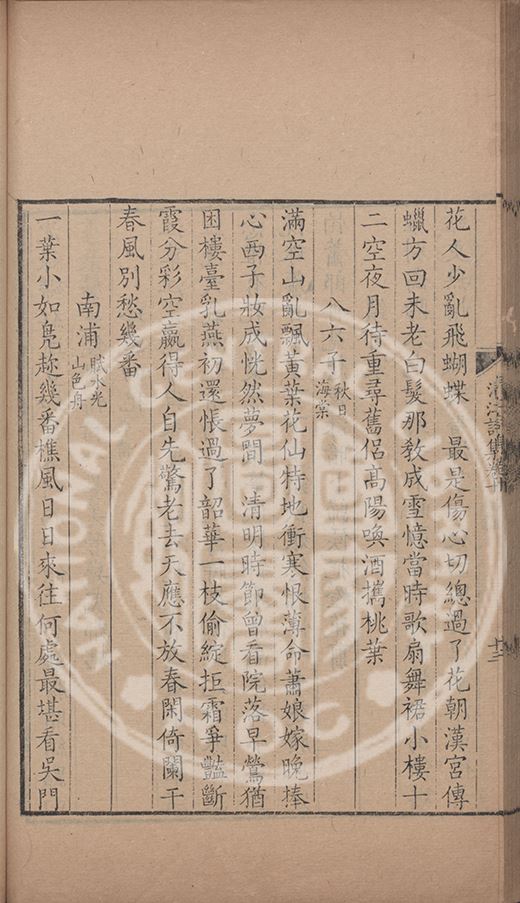 花人少亂飛蝴蝶　最是傷心切總過了花朝漢宮傳
蠟方回未老白髮那敎成雪憶當時歌扇舞裙小樓十
二空夜月待重尋舊侶高陽喚酒攜桃葉
八六子 秋日海棠
滿空山亂飄黃葉花仙特地衝寒恨薄命蕭娘嫁晚捧
心西子妝成恍然夢閒　清明時節曾看院落早鶯猶
困樓臺乳燕初還悵過了韶華一枝偷綻拒霜爭豔斷
霞分彩空贏得人自先驚老去天應不放春閑倚闌干
春風別愁幾番
南浦 賦水光山色舟
一葉小如鳧趂幾番樵風日日來往何處最堪看吳門